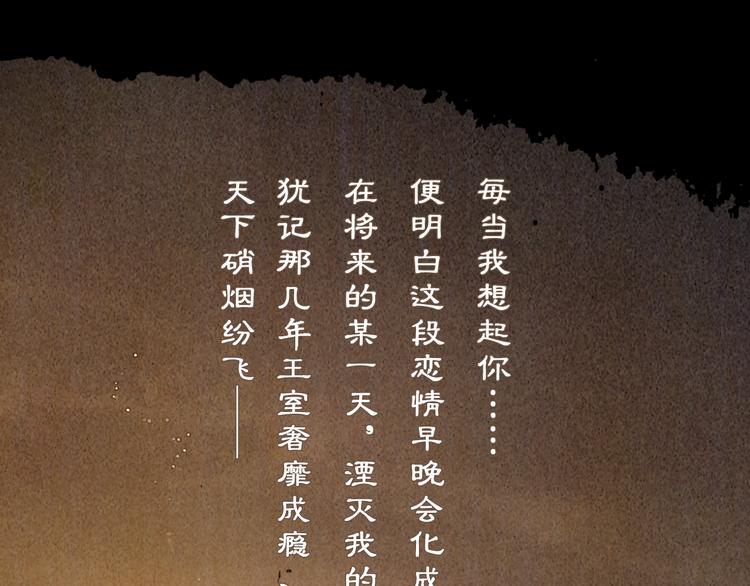 每当我想起你……
便明白这段恋情早晚会化成
在将来的某一天，湮灭我的
犹记那几年王室奢靡成瘾
天下硝烟纷飞——